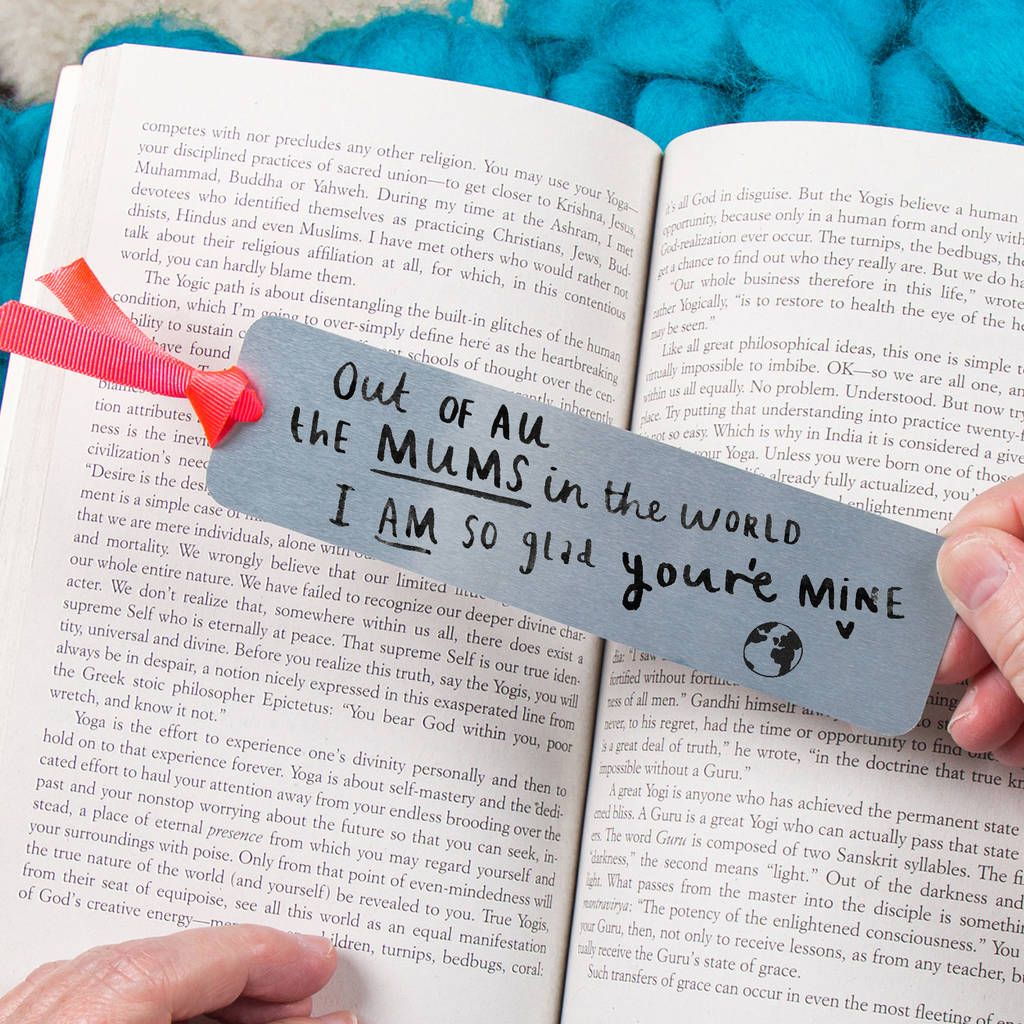 competes with nor precludes any other religion. You may use your Yoga—
your disciplined practices of sacred union—to get closer to Krishna, Jesus,
Muhammad, Buddha or Yahweh. During my time at the Ashram, I met
devotees who identified themselves as practicing Christians, Jews, Bud-
dhists, Hindus and even Muslims. I have met others who would rather not
talk about their religious affiliation at all, for which, in this contentious
world, you can hardly blame them.
The Yogic path is about disentangling the built-in glitches of the human
condition, which I'm going to over-simply define here as the heartbreaking
ability to sustain
have found schools of thought over the cen-
inherently
tion attributes
ness is the
civilization's
"Desire is the
ment is a simple case of
that we are mere individuals, alone with our
and mortality. We wrongly believe that our limited
our whole entire nature. We have failed to recognize our deeper divine char-
acter. We don't realize that, somewhere within us all, there does exist a
supreme Self who is eternally at peace. That supreme Self is our true iden-
tity, universal and divine. Before you realize this truth, say the Yogis, you will
always be in despair, a notion nicely expressed in this exasperated line from
the Greek stoic philosopher Epictetus: "You bear God within you, poor
wretch, and know it not."
Yoga is the effort to experience one's divinity personally and then to
hold on to that experience forever. Yoga is about self-mastery and the dedi-
cated effort to haul your attention away from your endless brooding over the
past and your nonstop worrying about the future so that you can seek, in-
stead, a place of eternal presence from which you may regard yourself and
your surroundings with poise. Only from that point of even-mindedness will
the true nature of the world (and yourself) be revealed to you. True Yogis,
from their seat of equipoise, see all this world as an equal manifestation
of God's creative energy—men, children, turnips, bedbugs, coral:
Out OF All
thE MUMS in the WORLD
I AM so glad you're MiNE
it's all God in disguise. But the Yogis believe a human
opportunity, because only in a human form and only with
God-realization ever occur. The turnips, the bedbugs, the
get a chance to find out who they really are. But we do
"Our whole business therefore in this life," wrote
rather Yogically, "is to restore to health the eye of the
may be seen."
Like all great philosophical ideas, this one is simple
virtually impossible to imbibe. OK—so we are all one, and
within us all equally. No problem. Understood. But now try
place. Try putting that understanding into practice
not so easy. Which is why in India it is considered a
your Yoga. Unless you were born one of those
already fully actualized, you're
enlightenment
"I saw
fortified without
ness of all men." Gandhi himself
never, to his regret, had the time or opportunity to find
is a great deal of truth," he wrote, "in the doctrine that true
impossible without a Guru."
A great Yogi is anyone who has achieved the permanent state
ened bliss. A Guru is a great Yogi who can actually pass that state
ers. The word Guru is composed of two Sanskrit syllables. The
"darkness," the second means "light." Out of the darkness and
light. What passes from the master into the disciple is
mantravirya: "The potency of the enlightened consciousness." You
your Guru, then, not only to receive lessons, as from any teacher,
tually receive the Guru's state of grace.
Such transfers of grace can occur in even the most fleeting of